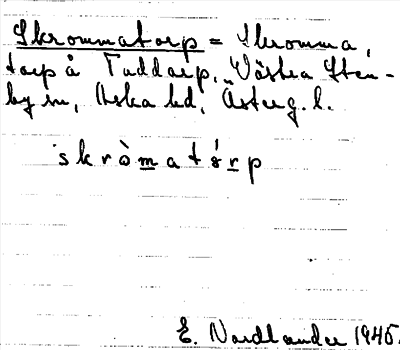 Skrommatorp = Skromma,
torp å Tuddorp, Västra Sten-
by sn, Aska hd, Österg. l.
skròmatǿrp
E. Nordlander 1945.